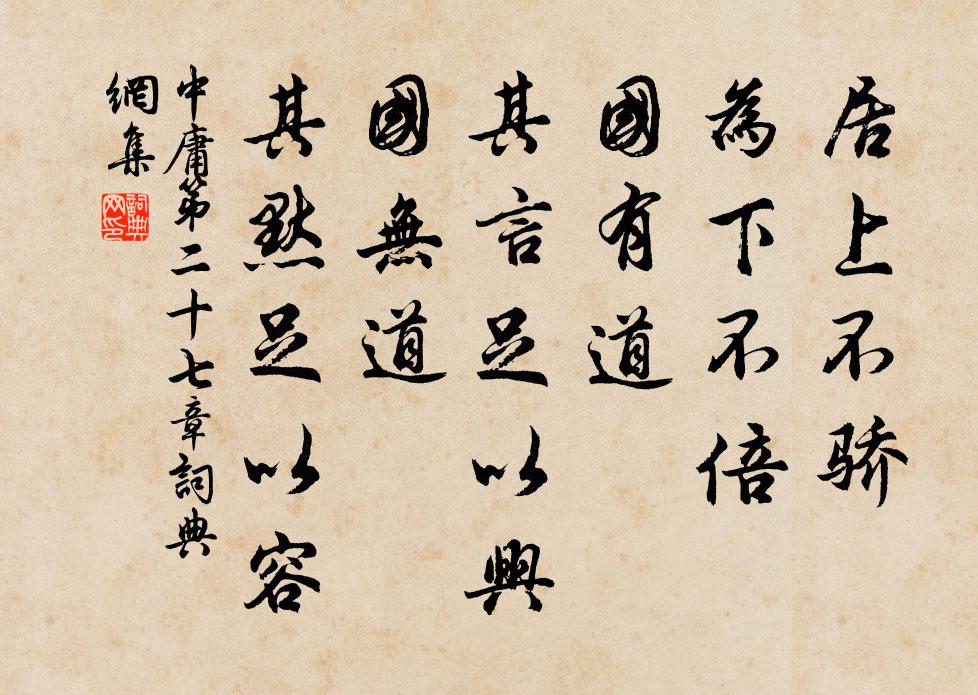 居上不骄
為下不倍
國有道
其言足以興
國無道
其默足以容
中庸第二十七章詞典
網集
詞典
网印